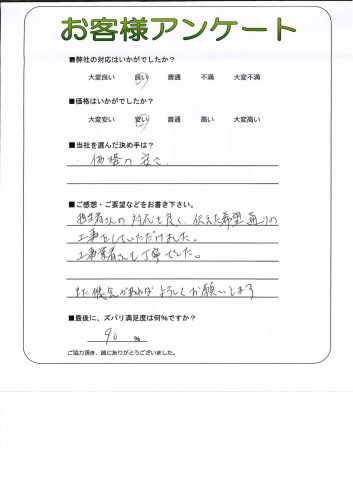 お客様アンケート
■弊社の対応はいかがでしたか？
大変良い 良い 普通 不満 大変不満
■価格はいかがでしたか？
大変安い 安い 普通 高い 大変高い
■当社を選んだ決め手は？
・価格の安さ。
■ご感想・ご要望などをお書き下さい。
担当者さんの対応も良く、伝えた希望通りの
工事をしていただけました。
工事業者さんも丁寧でした。
また機会があればよろしくお願いします
■最後に、ズバリ満足度は何%ですか？
90 %
ご協力頂き、誠にありがとうございました。